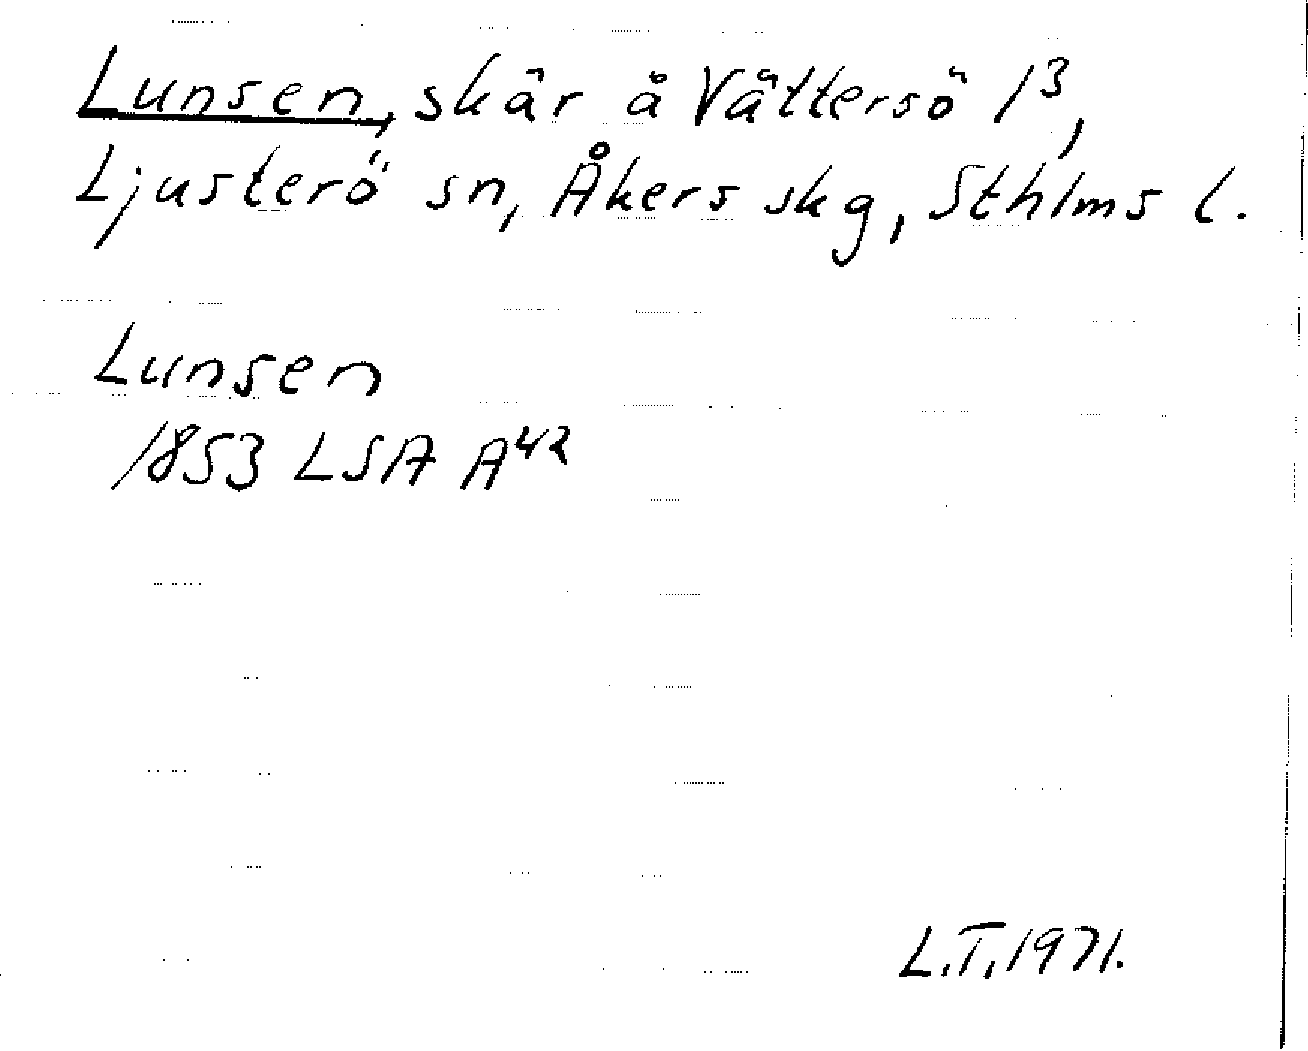 Lunsen, skär å Vättersö 1³,
Ljusterö sn, Åkers skg, Sthlms l.
Lunsen
1853 LSA A⁴²
L.T. 1971.